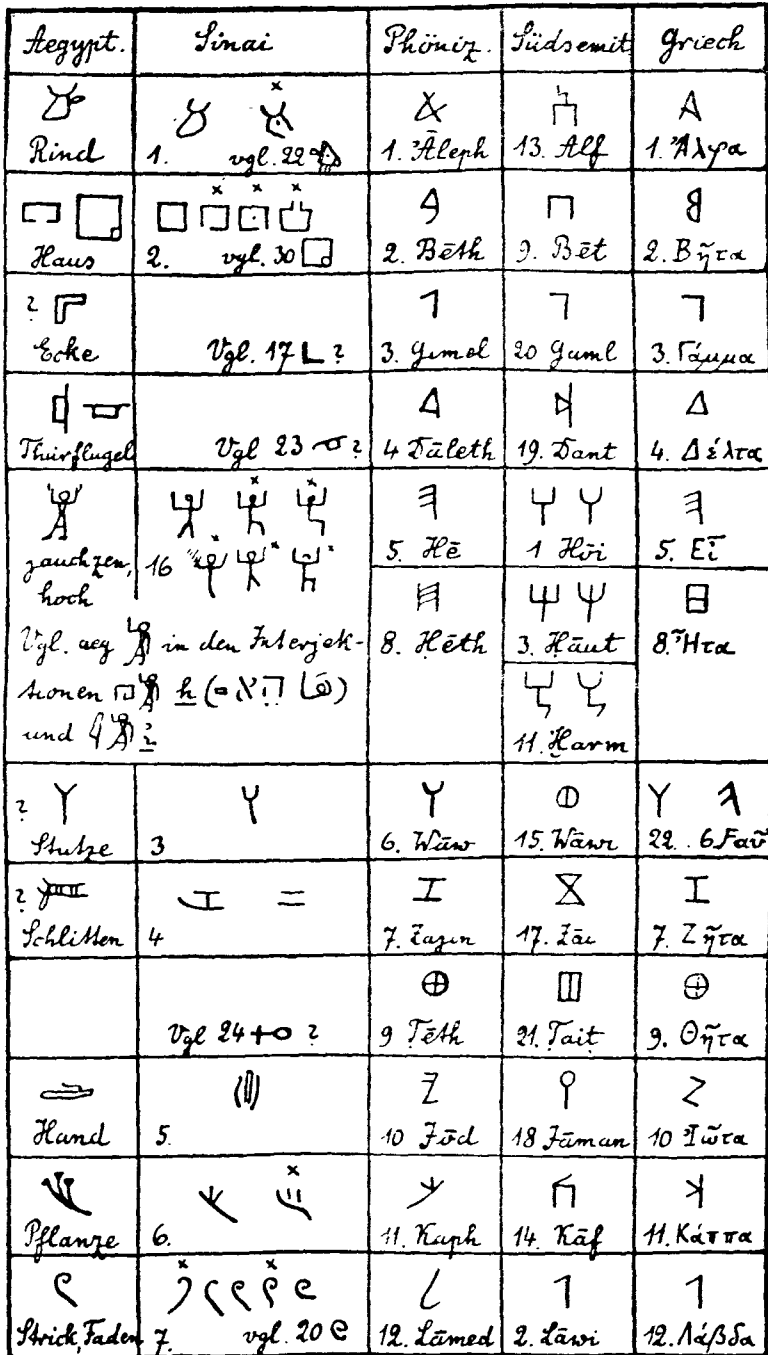 Aegypt. Sinai Phöniz. Südsemit Griech
Rind 1. vgl. 22 1. ʾĀleph 13. Alf 1. Ἄλφα
Haus 2. vgl. 30 2. Bēth 9. Bēt 2. Βῆτα
? Ecke Vgl. 17 ? 3. Gimel 20 Gaml 3. Γάμμα
Thürflügel Vgl 23 ? 4 Dāleth 19. Dant 4. Δέλτα
jauchzen, 16 5. Hē 1 Hōi 5. Εῖ
hoch
Vgl. aeg in den Interjek- 8. Ḥēth 3. Ḥāut 8. Ἦτα
tionen h
und 11. Ḫarm
? Stütze 3 6. Wāw 15. Wāwi 22. 6. Ϝαῦ
? Schlitten 4 7. Zazin 17. Zāi 7. Ζῆτα
Vgl 24 ? 9 Ṭēth 21. Ṭait 9. Θῆτα
Hand 5. 10 Jōd 18 Jāman 10 Ἰῶτα
Pflanze 6. 11. Kaph 14. Kāf 11. Κάππα
Strick, Faden 7. vgl. 20 12. Lāmed 2. Lāwi 12. Λάβδα